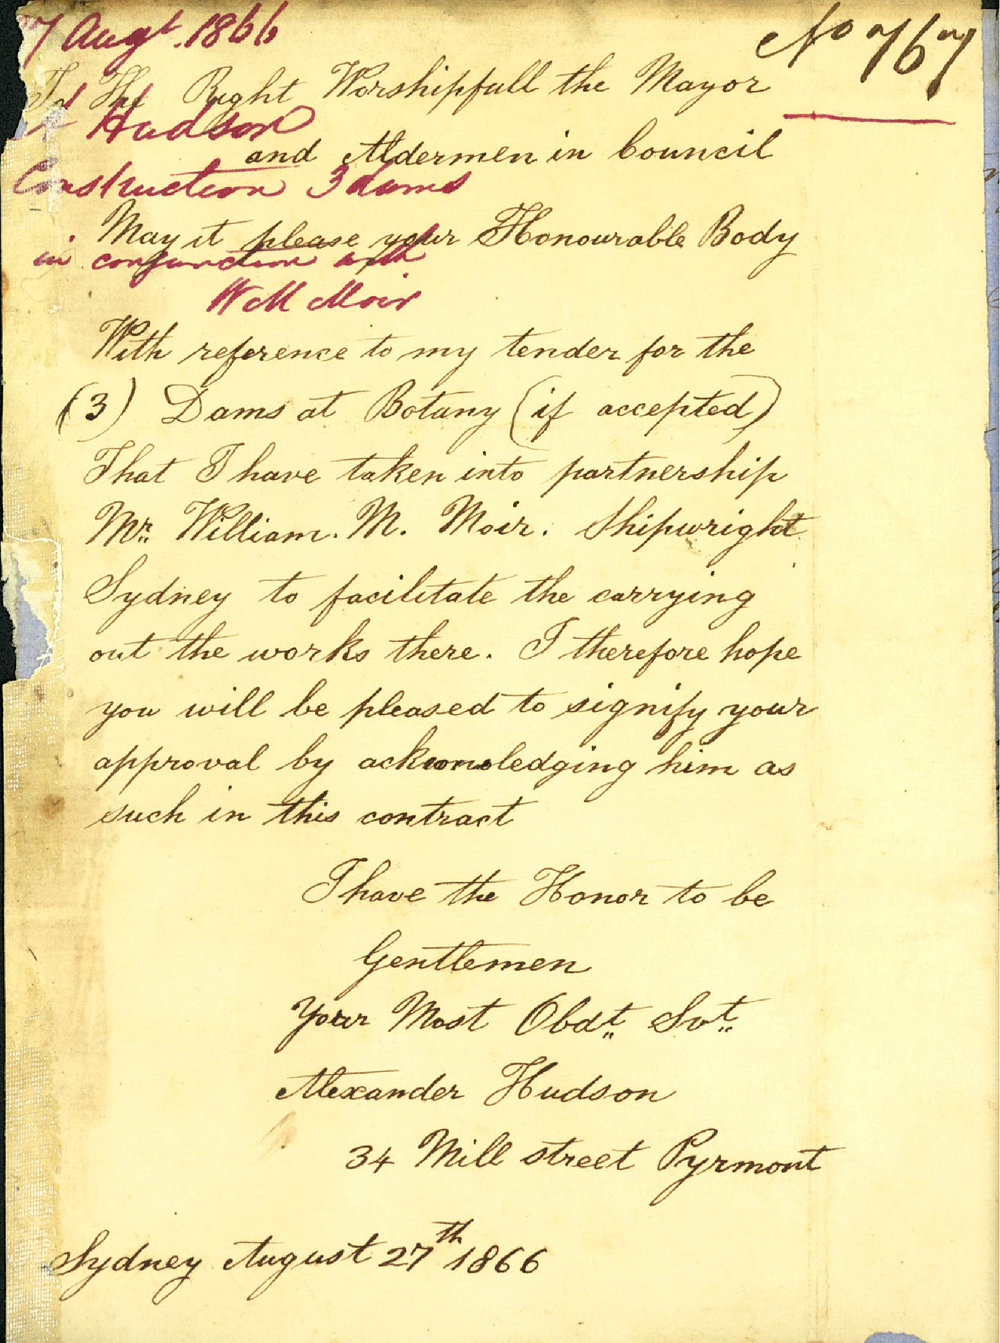 27 Augt. 1866
No 767
To The Right Worshipfull the Mayor
A Hudson
and Aldermen in Council
Construction 3 dams
May it please your Honourable Body
in conjunction with
W M Moir
With reference to my tender for the
(3) Dams at Botany (if accepted)
That I have taken into partnership
Mr. William. M. Moir. Shipwright
Sydney to facilitate the carrying
out the works there. I therefore hope
you will be pleased to signify your
approval by acknowledging him as
such in this contract
I have the Honor to be
Gentlemen
Your Most Obdt. Svt.
Alexander Hudson
34 Mill street Pyrmont
Sydney August 27th 1866